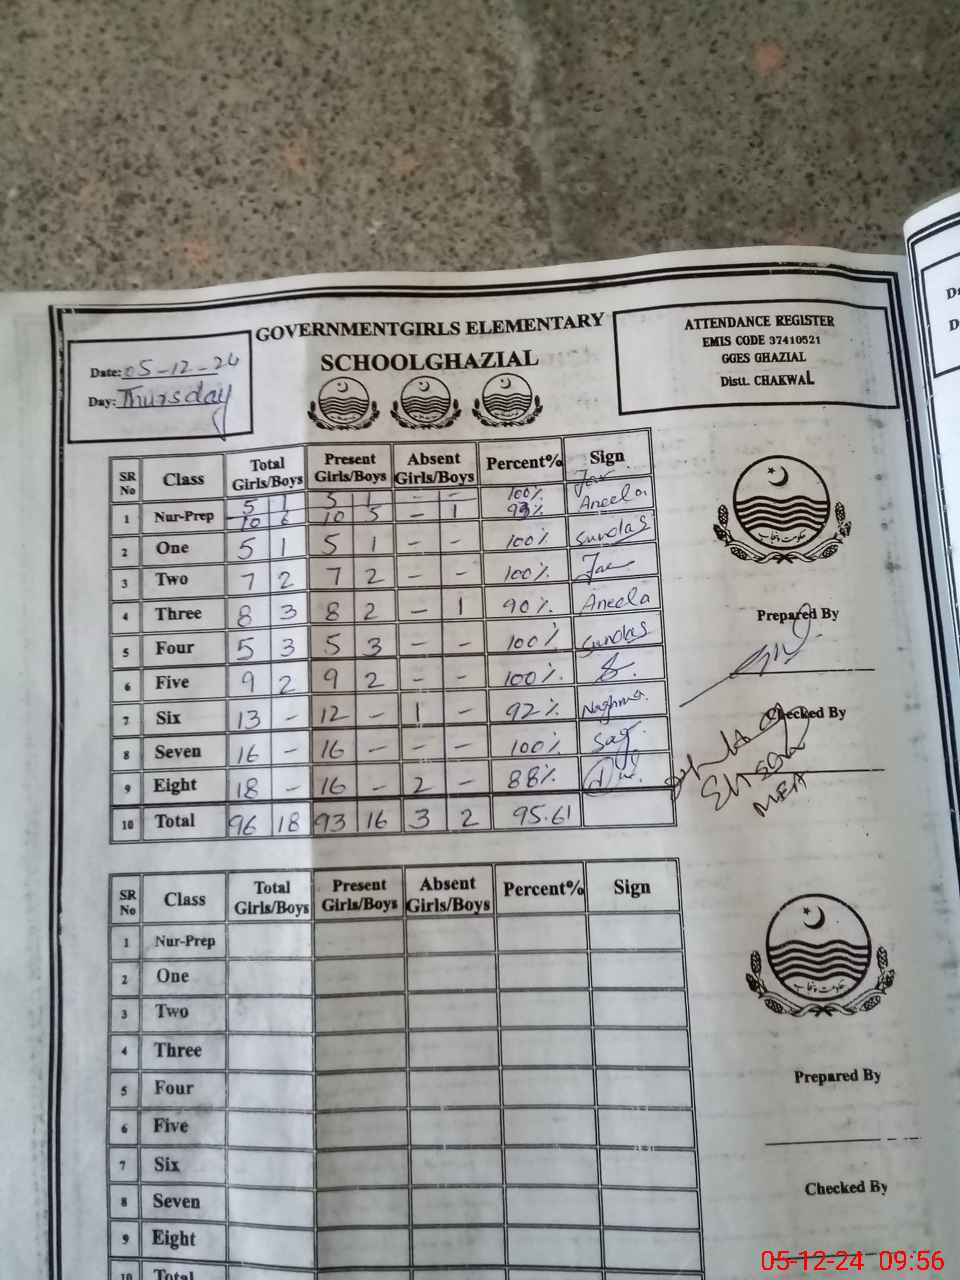 GOVERNMENTGIRLS ELEMENTARY
SCHOOLGHAZIAL
Date: 05-12-24
Day: Thursday
ATTENDANCE REGISTER
EMIS CODE 37410521
GGES GHAZIAL
Distt. CHAKWAL
SR No Class Total Girls/Boys Present Girls/Boys Absent Girls/Boys Percent% Sign
5 1 5 1 - - 100%
1 Nur-Prep 10 6 10 5 - 1 93% Aneela
2 One 5 1 5 1 - - 100% Sundas
3 Two 7 2 7 2 - - 100%
4 Three 8 3 8 2 - 1 90% Aneela
5 Four 5 3 5 3 - - 100% Sundas
6 Five 9 2 9 2 - - 100%
7 Six 13 - 12 - 1 - 92% Naghma
8 Seven 16 - 16 - - - 100%
9 Eight 18 - 16 - 2 - 88%
10 Total 96 18 93 16 3 2 95.61
حکومت پنجاب
Prepared By
Checked By
MEA
SR No Class Total Girls/Boys Present Girls/Boys Absent Girls/Boys Percent% Sign
1 Nur-Prep
2 One
3 Two
4 Three
5 Four
6 Five
7 Six
8 Seven
9 Eight
10 Total
حکومت پنجاب
Prepared By
Checked By
05-12-24 09:56